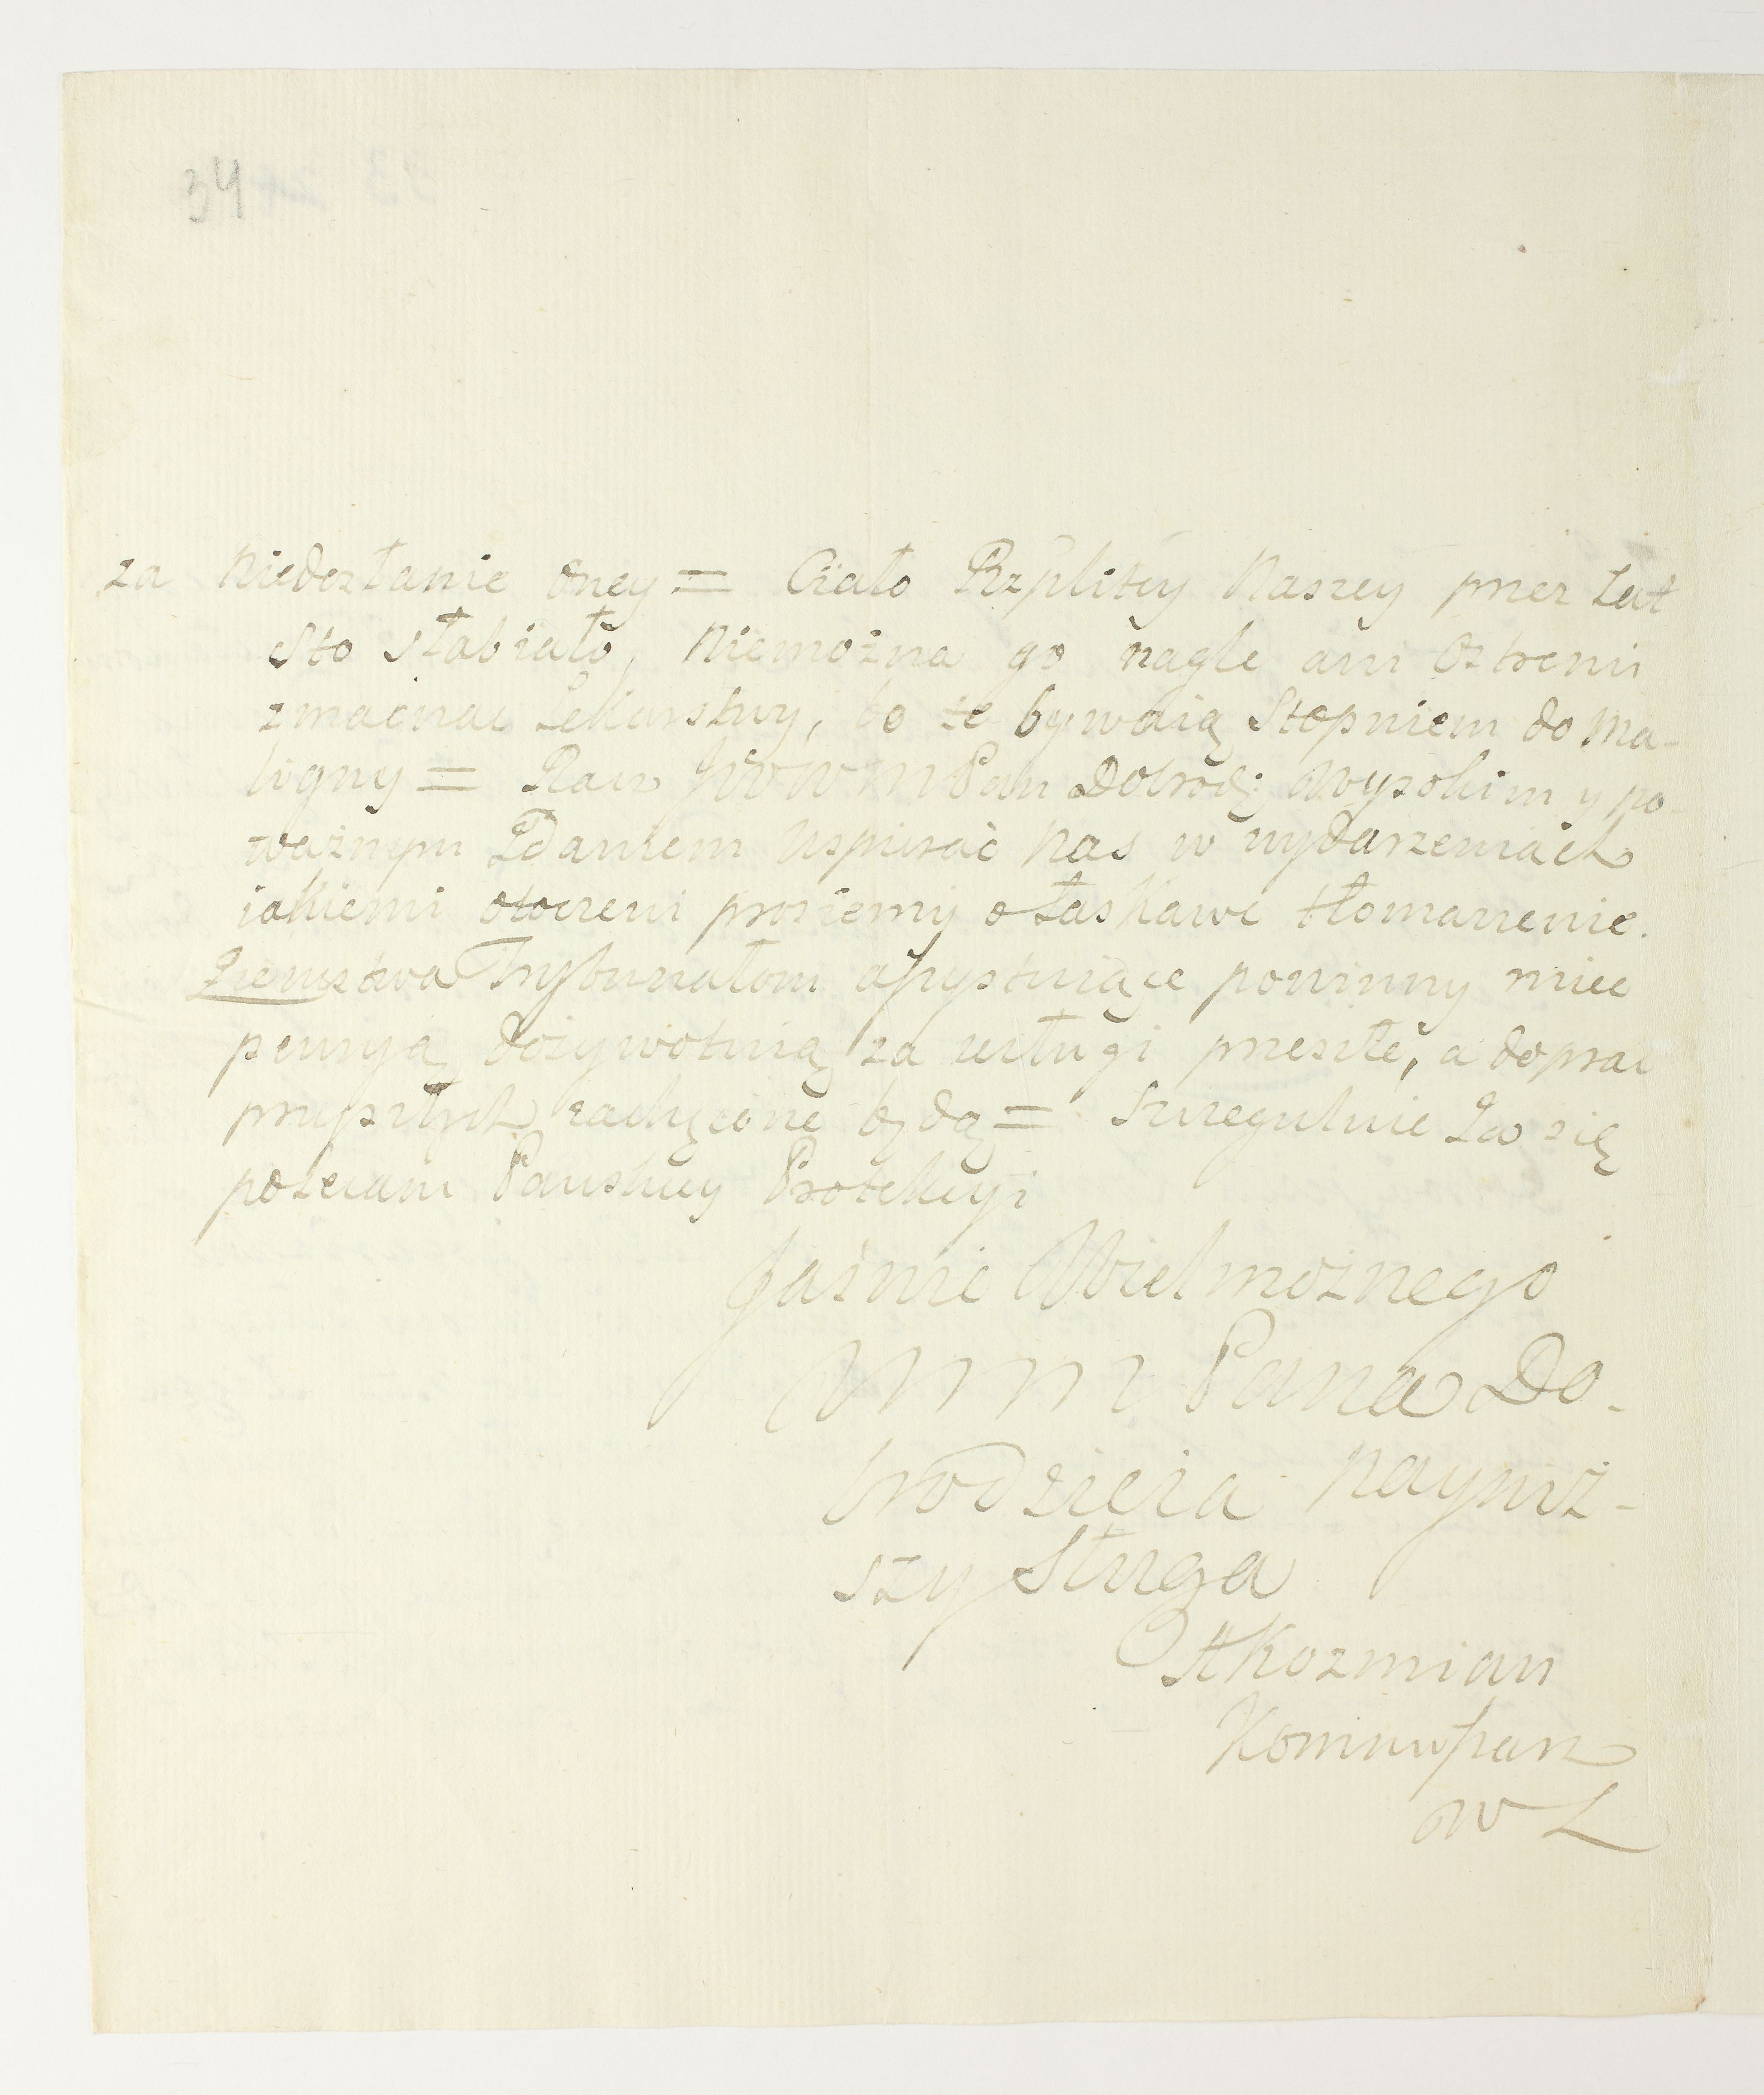 34
za niedozłanie oney = Ciało Rzplitey Naszey przez Lat
Sto słabiało, niemożna go nagle ani Ostremi
zmacniac Lekarstwy, bo te bywaią Stopniem do ma-
ligny = Racz JWW M Pan Dobrodz: Wysokim y po-
ważnym Zdaniem wspierać nas w wydarzeniach
iakiemi otoczeni prosiemy o Łaskawe tłomaczenie.
Ziemstwa Trybunałom assystuiące powinny miec
pensyą dożywotnią za usługi przeszłe, a do prac
przyszłych zachęcone będą = Szczegulnie Zas się
polecam Panskiey Protekcyi
Jaśnie Wielmożnego
WMM Pana Do-
brodzieia nayniż-
szy Sługa
AKozmian
Kommissarz
W L